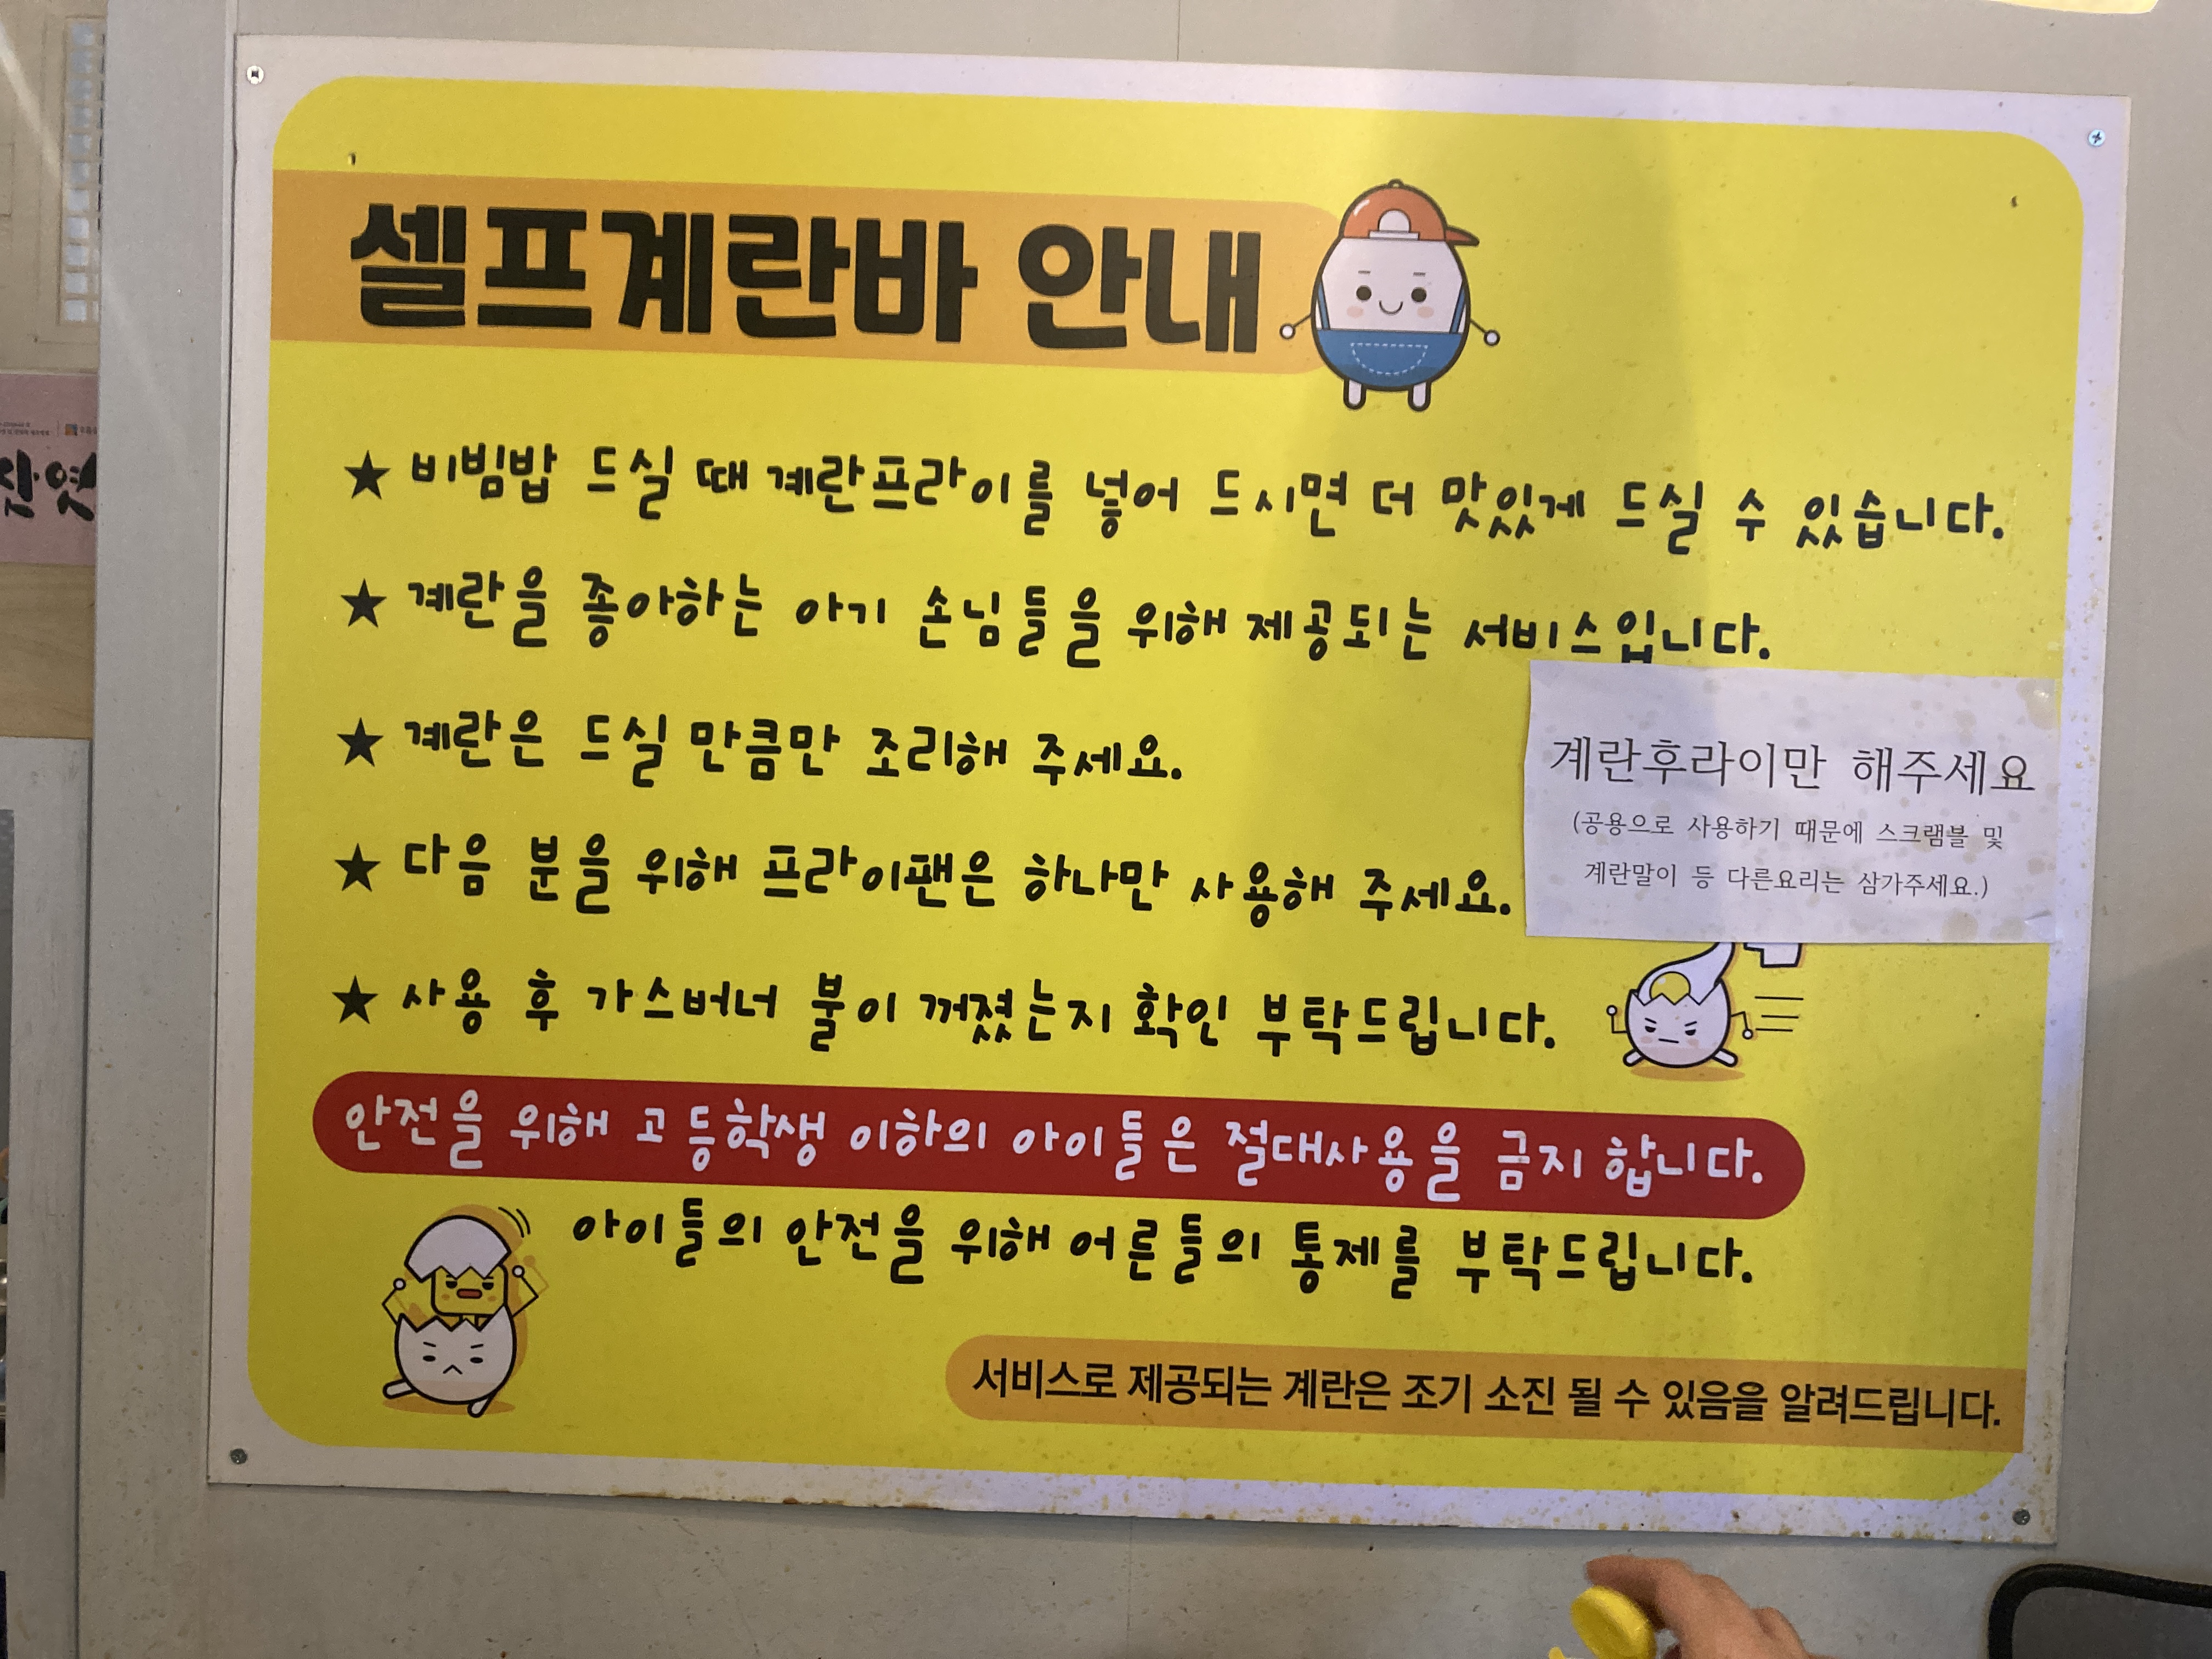 셀프계란바 안내
★ 비빔밥 드실 때 계란프라이를 넣어 드시면 더 맛있게 드실 수 있습니다.
★ 계란을 좋아하는 아기 손님들을 위해 제공되는 서비스입니다.
★ 계란은 드실 만큼만 조리해 주세요.
계란후라이만 해주세요
(공용으로 사용하기 때문에 스크램블 및
계란말이 등 다른요리는 삼가주세요.)
★ 다음 분을 위해 프라이팬은 하나만 사용해 주세요.
★ 사용 후 가스버너 불이 꺼졌는지 확인 부탁드립니다.
안전을 위해 고등학생 이하의 아이들은 절대사용을 금지 합니다.
아이들의 안전을 위해 어른들의 통제를 부탁드립니다.
서비스로 제공되는 계란은 조기 소진 될 수 있음을 알려드립니다.